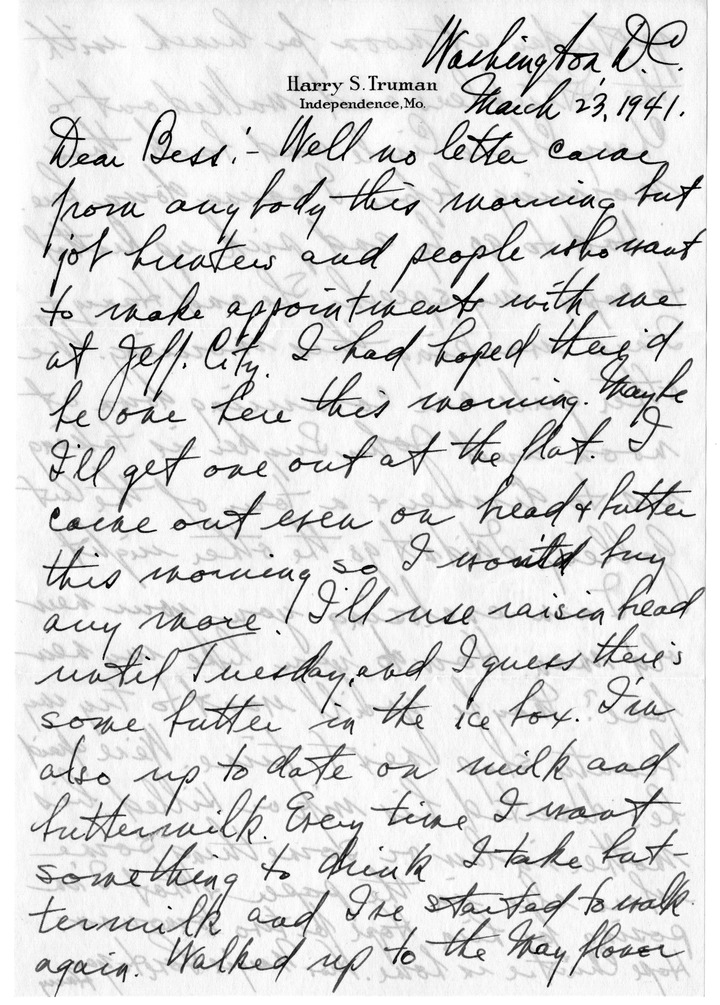 Washington, D.C.
Harry S. Truman
Independence, Mo.
March 23, 1941.
Dear Bess:- Well no letter came
from anybody this morning but
job hunters and people who want
to make appointments with me
at Jeff. City. I had hoped there'd
be one here this morning. Maybe
I'll get one out at the flat. I
came out even on bread & butter
this morning so I won't buy
any more. I'll use raisin bread
until Tuesday, and I guess there's
some butter in the ice box. I'm
also up to date on milk and
buttermilk. Every time I want
something to drink I take but-
termilk and I've started to walk
again. Walked up to the Mayflower